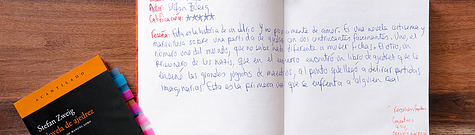 Autor: Stefan Zweig
Calificación: ★★★★★
Reseña: Esta es la historia de un delirio. Y no precisamente de amor. Es una novela cortísima y
maravillosa sobre una partida de ajedrez con dos contrincantes fascinantes. Uno, el
número uno del mundo, que no sabe hacer nada diferente a mover fichas. El otro, un
prisionero de los nazis, que en el encierro encontró un libro de ajedrez que le
enseñó las grandes jugadas de maestros, al punto que llegó a delirar partidas
imaginarias. Esta es la primera vez que se enfrenta a alguien real
ACANTILADO
Stefan Zweig
Novela de ajedrez